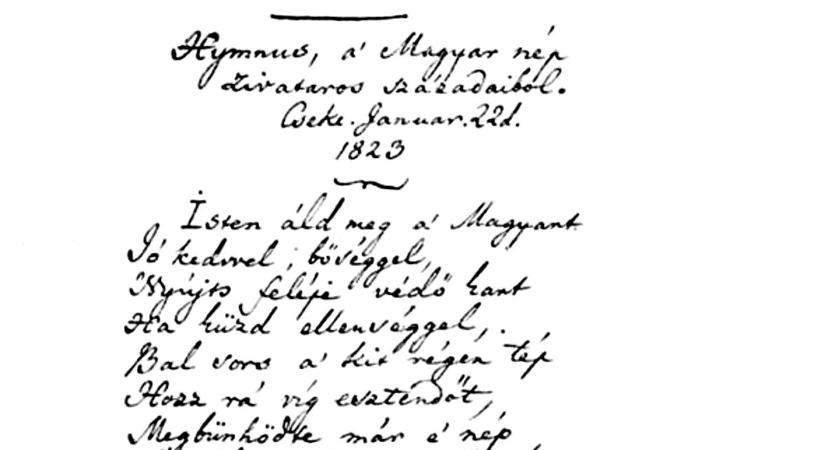 Hymnus, a' Magyar nép
zivataros századaiból.
Cseke. Januar. 22d.
1823
Isten áld meg a' Magyart
Jó kedvvel, bőséggel,
Nyújts feléje védő kart
Ha küzd ellenséggel,
Bal sors a' kit régen tép
Hozz rá víg esztendőt,
Megbünhődte már e' nép